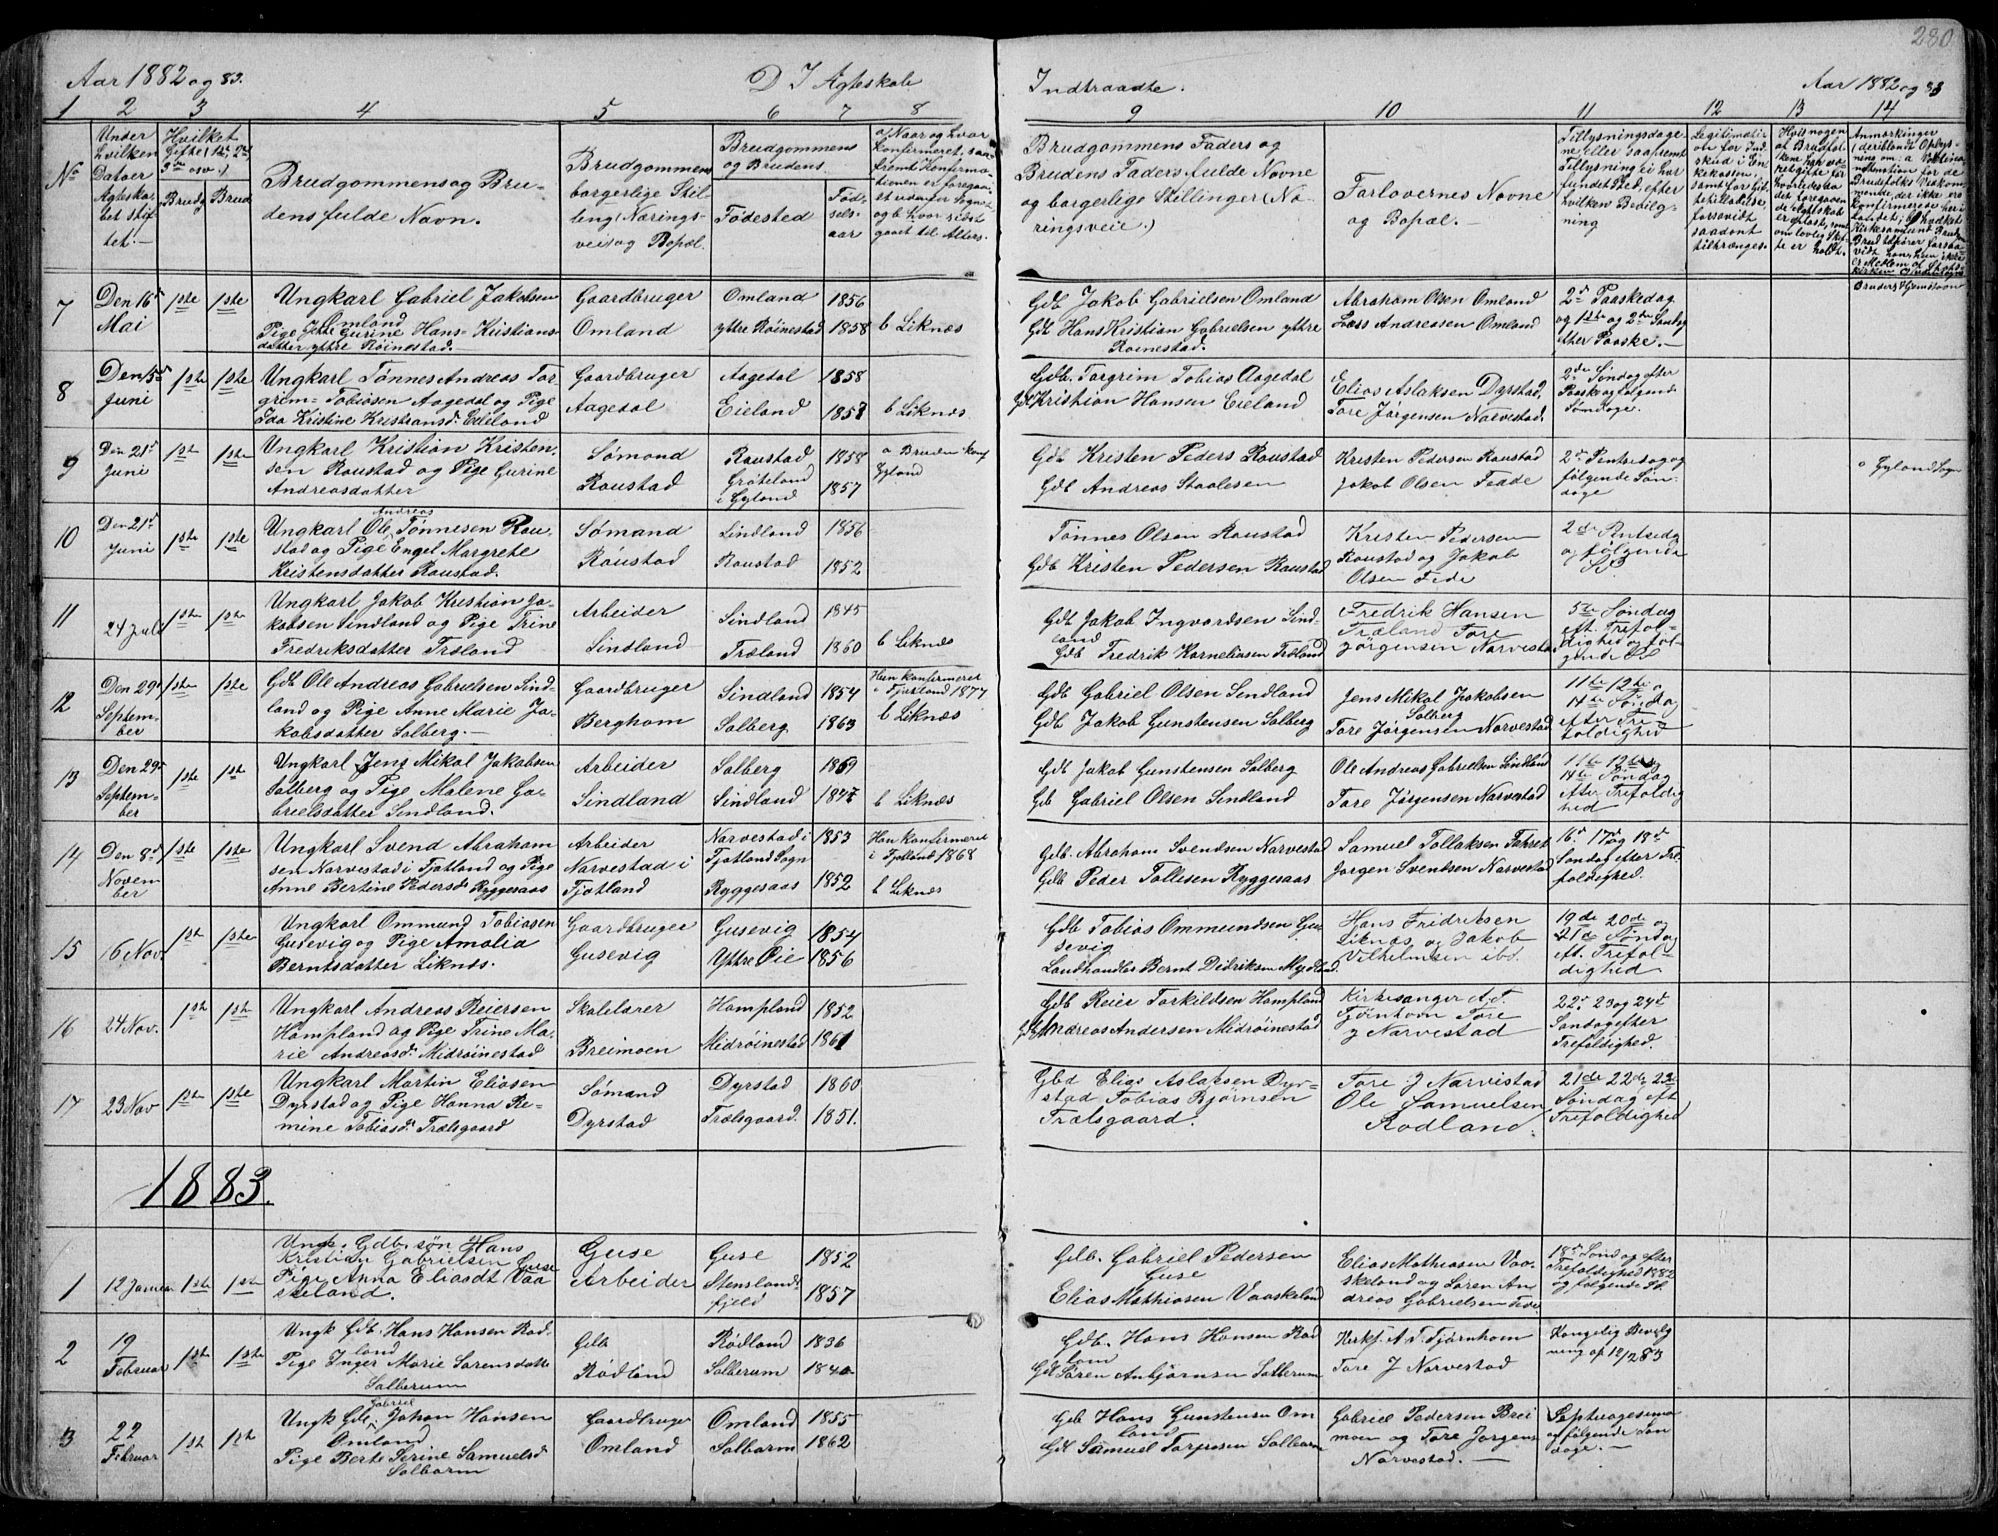 280
Aar 1882 og 83.
D I Ægteskab
Indtraadte.
Aar 1882 og 83
1 2 3 4 5 6 7 8 9 10 11 12 13 14
No
Under hvilken Datoer Ægteskabet stiftet.
Hvilket Gifte (1ste, 2det 3die osv.)
Brudg Brud
Brudgommens og Brudens fulde Navn.
Brudgommens borgerlige Stilling (Næringsvei) og Bopæl.
Brudgommens og Brudens
Fødested
Fødselsaar
a Naar og hvor konfirmeret, saafremt Konfirmationen er foregaaet udenfor Sognet og b hvor sidst gaaet til Alters.
Brudgommens Faders og Brudens Faders fulde Navne og borgerlige Stillinger (Næringsveie.)
Forlovernes Navne og Bopæl.
Tillysningsdagene eller saafremt Tillysning ei har fundet Sted, efter hvilken Bevilgning
7
Den 16de Mai
1ste 1ste
Ungkarl Gabriel Jakobsen Omland
Pige Gurine Hans-Kristiansdatter yttre Röinestad.
Gaardbruger Omland
Omland 1856
yttre Röinestad 1858
b Liknæs
Gdb Jakob Gabrielsen Omland
Gdb Hans Kristian Gabrielsen yttre Roinestad.
Abraham Olsen Omland
Lars Andreasen Omland
2den Paaskedag og 1ste og 2den Søndag efter Paaske.
Brudens Hjemstavn
8
Den 15de Juni
1ste 1ste
Ungkarl Tønnes Andreas Torgrim-Tobiasen Aagedal og Pige
Kristine Kristiansd. Eieland
Gaardbruger Aagedal
Aagedal 1858
Eieland 1858
b Liknæs
Gdb. Torgrim Tobias Aagedal
Gdb Kristian Hansen Eieland
Elias Aslaksen Dyrstad,
Tore Jørgensen Narvestad.
2den Søndag efter Paaske og følgende Søndage.
9
Den 21de Juni
1ste 1ste
Ungkarl Kristian Kristensen Raustad og Pige Gurine Andreasdatter
Sømand Raustad
Raustad 1858
Gröteland i Gyland 1857
a Bruden konf Gyland
Gdb Kristen Peders Raustad
Gdb Andreas Staalesen
Kristen Pedersen Raustad
Jakob Olsen Feade
2den Pintsedag og følgende Søndage
Gyland Sogn
10
Den 21de Juni
1ste 1ste
Ungkarl Ole Andreas Tønnesen Raustad og Pige Engel Margrete Kristensdatter Raustad.
Sømand Röustad
Sindland 1856
Raustad 1852
Tønnes Olsen Raustad
Gdb Kristen Pedersen Raustad
Kristen Pedersen Raustad og Jakob Olsen Fede
2den Pintsedg og følgende
11
24 Juli
1ste 1ste
Ungkarl Jakob Kristian Jakobsen Sindland og Pige Trine Fredriksdatter Træland
Arbeider Sindland
Sindland 1845
Træland 1860
b Liknæs
Gdb Jakob Ingvardsen Sindland
Gdb Fredrik Korneliusen Træland
Fredrik Hansen Træland Tore Jörgensen Narvestad
5te Søndag eft. Trefoldighed og følgende
12
Den 29de September
1ste 1ste
Gdb Ole Andreas Gabrielsen Sindland og Pige Anne Marie Jakobsdatter Salberg.
Gaardbruger Berghom
Sindland 1854
Salberg 1863
Hun konfirmeret i Fjotland 1877
b Liknæs
Gdb Gabriel Olsen Sindland
Gdb Jakob Gunstensen Salberg
Jens Mikal Jakobsen Solberg
Tore Jørgensen Narvestad
11te 12te og 14te Søndag efter Trefoldighed
13
Den 29de September
1ste 1ste
Ungkarl Jens Mikal Jakobsen Salberg og Pige Malene Gabrielsdatter Sindland.
Arbeider Sindland
Salberg 1859
Sindland 1847
b Liknæs
Gdb Jakob Gunstensen Salberg
Gdb Gabriel Olsen Sindland
Ole Andreas Gabrielsen Sindland
Tore Jørgensen Narvestad
11te 12te og 14te Søndag efter Trefoldighed
14
Den 8de November
1ste 1ste
Ungkarl Svend Abrahamsen Narvestad i Fjotland og Pige Anne Bertine Pedersd. Ryggesaas
Arbeider Narvestad i Fjotland
Narvestad i Fjotland Sogn 1853
Ryggesaas 1852
Han konfirmeret i Fjotland 1868
b Liknæs
Gdb. Abraham Svendsen Narvestad
Gdb Peder Tollesen Ryggesaas
Samuel Tollaksen
Jørgen Svendsen Narvestad
16de 17de og 18de Søndag efter Trefoldighed.
15
16 Nov.
1ste 1ste
Ungkarl Ommund Tobiasen Gusevig og Pige Amalia Berntsdatter Liknæs.
Gaardbruger Gusevig
Gusevig 1854
Yttre Øie 1856
Gdb Tobias Ommundsen Gusevig
Landhandler Bernt Didriksen
Hans Fridriksen Liknæs og Jakob Vilhelmsen ibd.
19de 20de og 21de Søndag eft. Trefoldighed
16
24 Nov.
1ste 1ste
Ungkarl Andreas Reiersen Hompland og Pige Trine Marie Andreasd. Midröinestad
Skolelærer Breimoen
Hompland 1852
Midröinestad 1861
Gdb Reier Torkildsen Hompland
Gdb Andreas Andersen Midröinestad
Kirkesanger A. T. Fjörnhom Tore J Narvestad
22de 23 og 24de Søndag efter Trefoldighed.
17
23 Nov
1ste 1ste
Ungkarl Martin Eliasen Dyrstad og Pige Hanna Remine Tobiasd. Trælsgaard
Sømand Dyrstad
Dyrstad 1860
Trælsgaard. 1851.
Gbd Elias Aslaksen Dyrstad
Tobias Bjørnsen Trælsgaard.
Tore J Narvestad
Ole Samuelsen Rødland
21de 22de 23de Søndag eft Trefoldighed
1883.
1
12 Januar
1ste 1ste
Ungk. Gdb. søn Hans Kristian Gabrielsen Guse
Pige Anna Eliasdt Vaaskeland.
Guse Arbeider
Guse 1852
Stenslandsfjeld 1857
Gdb. Gabriel Pedersen Guse
Elias Mathiasen Vaaskeland
Elias Mathiasen Vaaskeland og Søren Andreas Gabrielsen
18de Søndag efter Trefoldighed 1882 og følgende Sd.
2
19 Februar
1ste 1ste
Ungk Gdb. Hans Hansen Rødland
Pige Inger Marie Sørensdatter Salberum
Gdb Rødland
Rødland 1836
Salberum 1840
Gdb. Hans Hansen Rødland
Gdb Søren Anbjørnsen Salberum
Kirks. A. T. Fjørnhom
Tore J Narvestad
Kongelig Bevilgning af 12/2 83
3
22 Februar
1ste 1ste
Ungk Gdb. Gabriel Johan Hansen Omland
Pige Berte Serine Samuelsd Salbarm
Gaardbruger Omland
Omland 1855
Salbarm 1862
Gdb Hans Gunstensen Omland
Gdb Samuel Torjusen Salbarm
Gabriel Pedersen Breimoen og Tore Jørgens Narvestad.
Septuagesima og følgende Søndage.